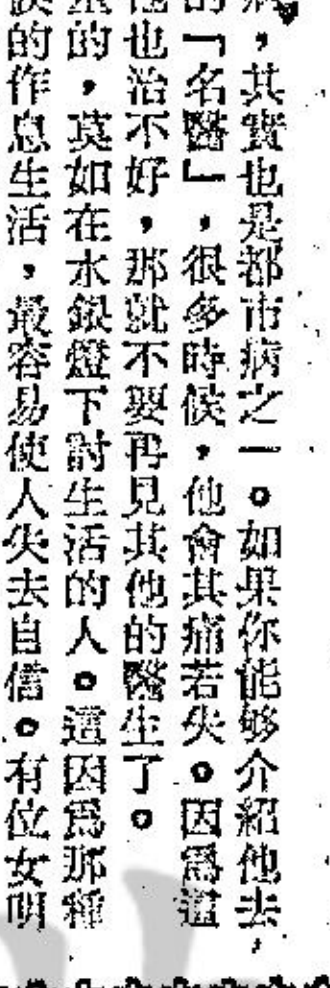 病，其實也是都市病之一。如果你能够介紹他去
的「名醫」，很多時候，他會其痛若失。因爲這
他也治不好，那就不要再見其他的醫生了。
的，莫如在水銀燈下討生活的人。這因爲那種
的作息生活，最容易使人失去自信。有位女明